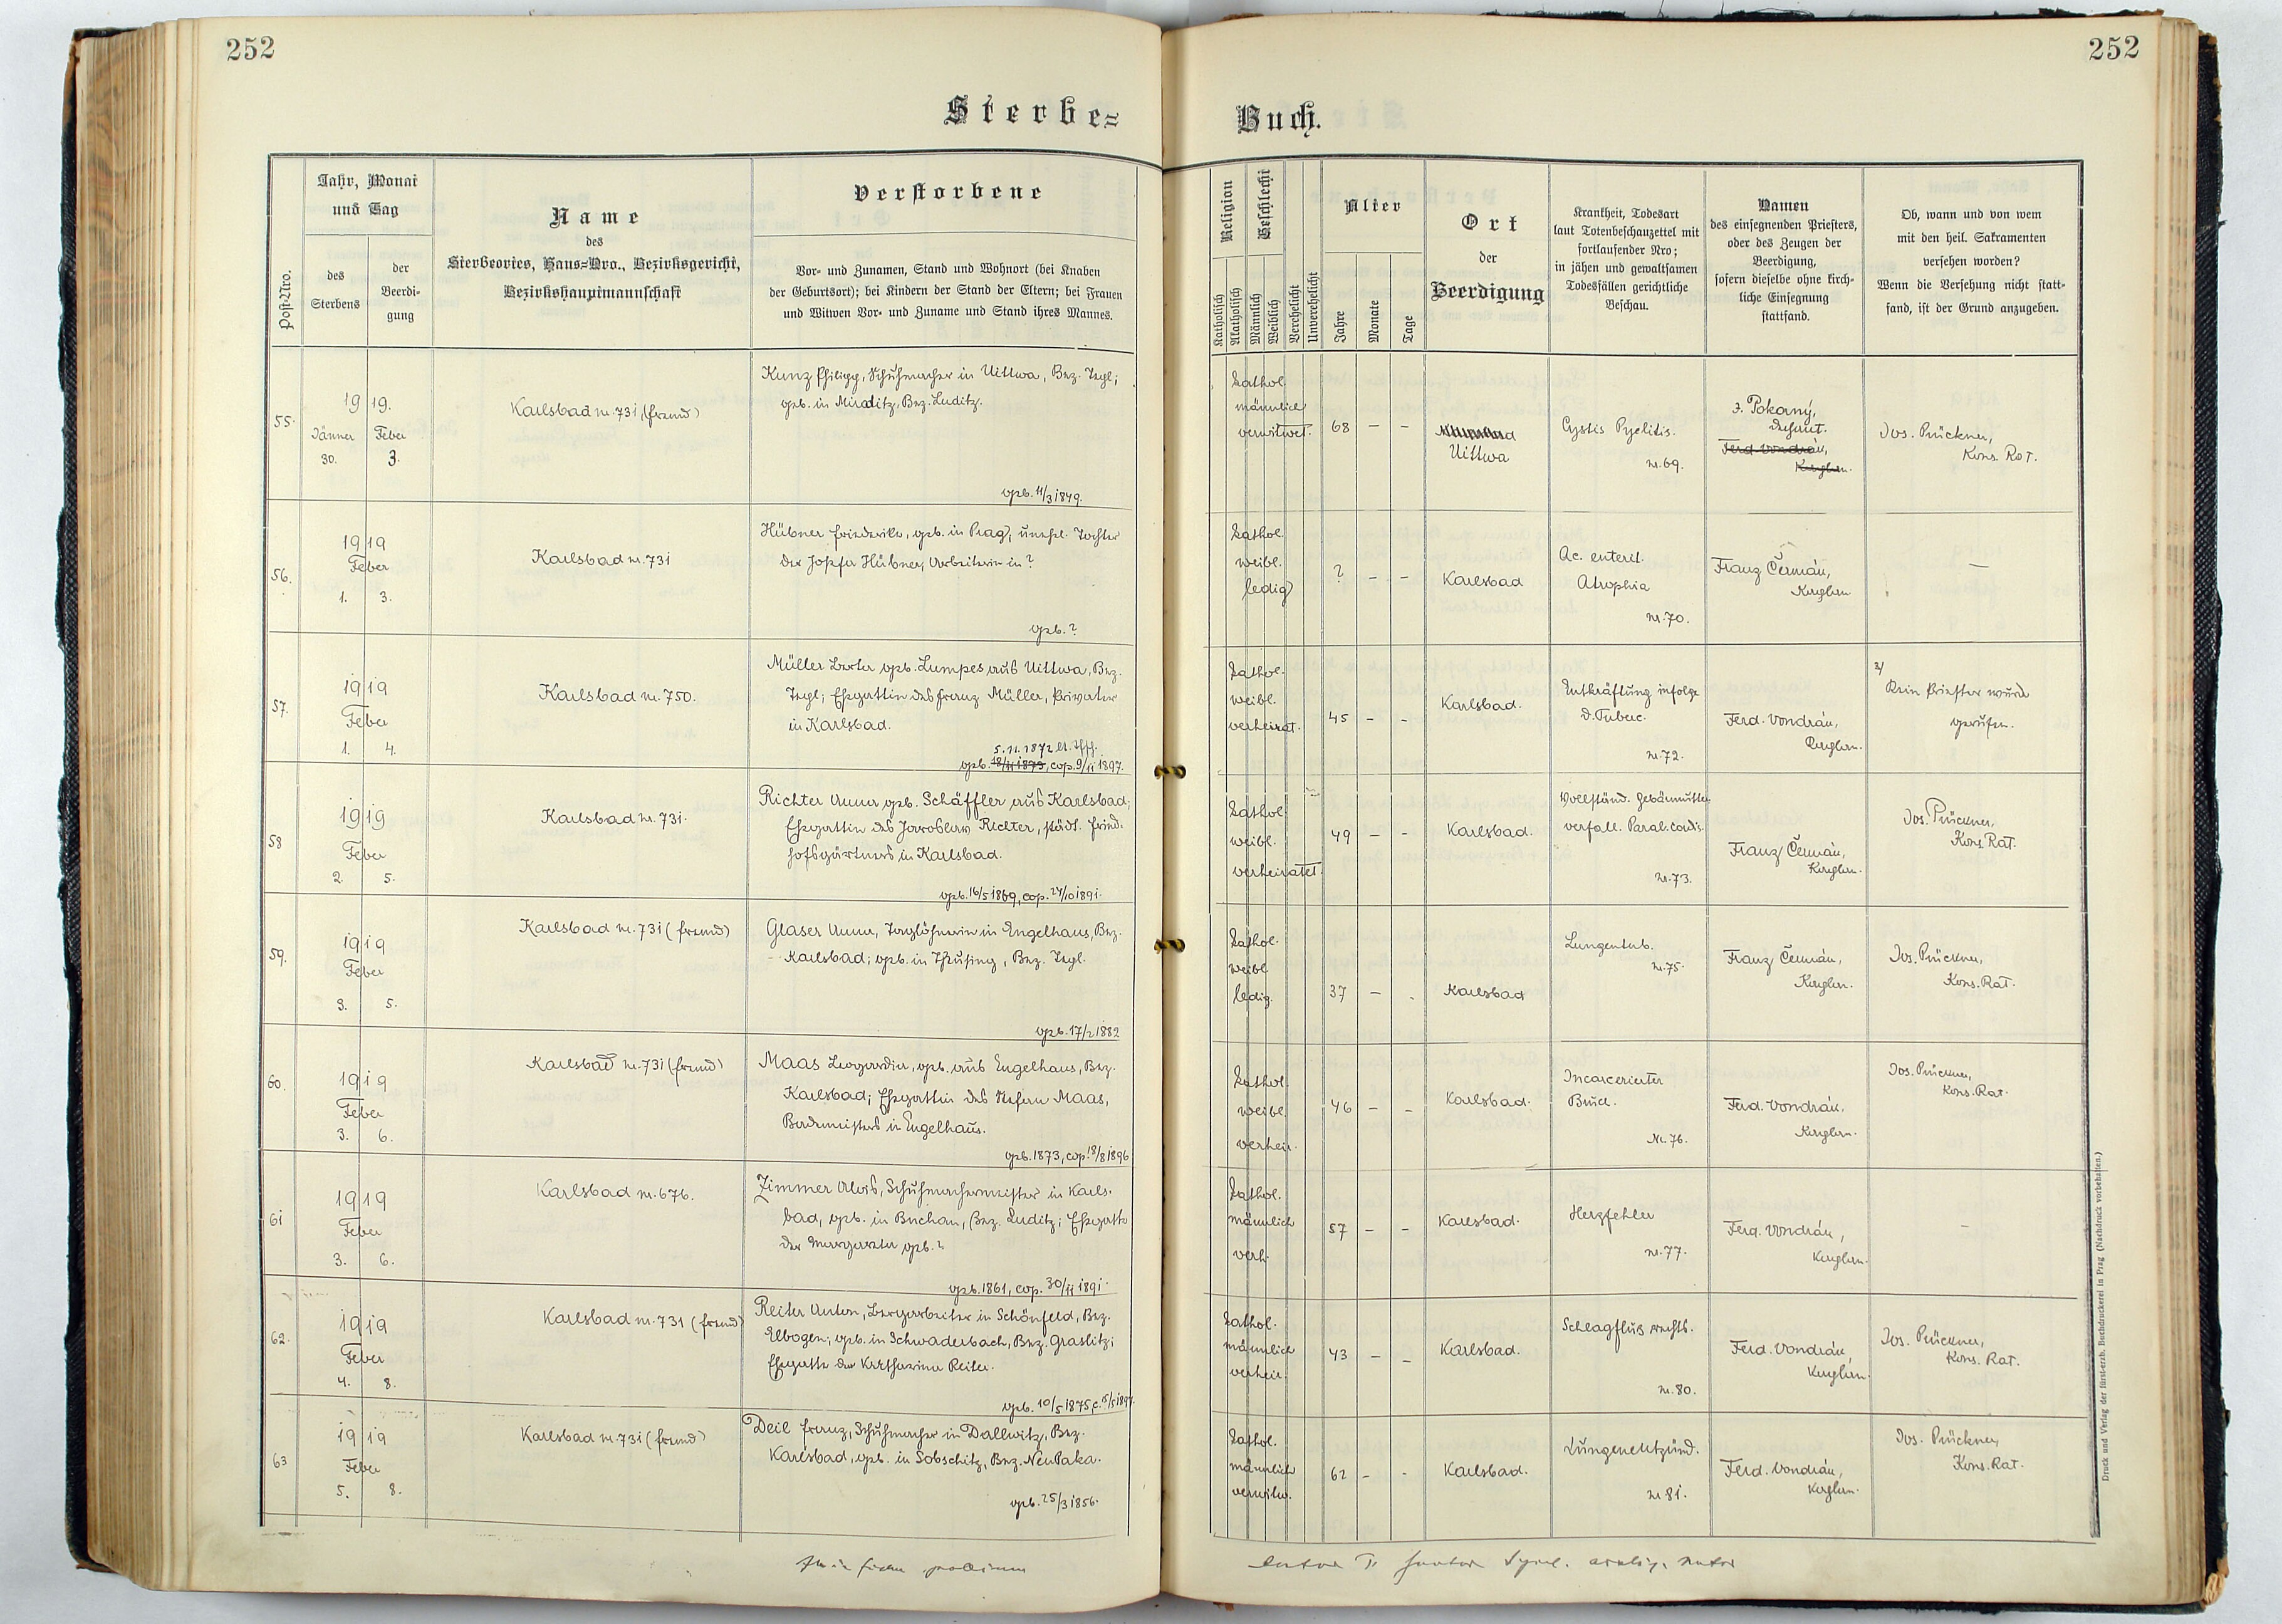 252
252
Sterbe=
Buch.
Post-Nro.
Jahr, Monat
und Tag
des
Sterbens
der
Beerdi-
gung
Name
des
Sterbeortes, Haus=Nro., Bezirksgericht,
Bezirkshauptmannschaft
Verstorbene
Vor- und Zunamen, Stand und Wohnort (bei Knaben
der Geburtsort); bei Kindern der Stand der Eltern; bei Frauen
und Witwen Vor- und Zuname und Stand ihres Mannes.
Religion
Katholisch
Akatholisch
Geschlecht
Männlich
Weiblich
Verehelicht
Unverehelicht
Alter
Jahre
Monate
Tage
Ort
der
Beerdigung
Krankheit, Todesart
laut Totenbeschauzettel mit
fortlaufender Nro;
in jähen und gewaltsamen
Todesfällen gerichtliche
Beschau.
Namen
des einsegnenden Priesters,
oder des Zeugen der
Beerdigung,
sofern dieselbe ohne kirch-
liche Einsegnung
stattfand.
Ob, wann und von wem
mit den heil. Sakramenten
versehen worden?
Wenn die Versehung nicht statt-
fand, ist der Grund anzugeben.
55.
1919.
Jänner Feber
30. 3.
Karlsbad nr. 731, (fremd)
Kunz Philipp, Schuhmacher in Uittwa, Bez. Tepl;
geb. in Miroditz, Bez. Luditz.
geb. 11/3 1849.
kathol.
männlich
verwitwet.
68 – –
Uittwa
Cystis Pyelitis.
nr. 69.
J. Pokorný,
Dechant.
Ferd. Vondrán,
Kaplan.
Jos. Prückner,
Kons. Rat.
56.
1919
Feber
1. 3.
Karlsbad nr. 731
Hübner Friederike, geb. in Prag, unehel. Tochter
der Josefa Hübner, Arbeiterin in ?
geb. ?
kathol.
weibl.
ledig
? – –
Karlsbad
Ac. enterit.
Atrophia
nr. 70.
Franz Čermán,
Kaplan
–
57.
1919
Feber
1. 4.
Karlsbad nr. 750.
Müller Berta geb. Lumpes aus Uittwa, Bez.
Tepl; Ehegattin des Franz Müller, Privatier
in Karlsbad.
5. 11. 1872
geb. 18/11 1873, cop. 9/11 1897.
kathol.
weibl.
verheirat.
45 – –
Karlsbad.
Entkräftung infolge
d. Tuberc.
nr. 72.
Ferd. Vondrán,
Kaplan.
Kein Priester wurde
gerufen.
58
1919
Feber
2. 5.
Karlsbad nr. 731.
Richter Anna geb. Schäffler aus Karlsbad;
Ehegattin des Jaroslaw Richter, städt. Fried-
hofsgärtners in Karlsbad.
geb. 16/5 1869, cop. 24/10 1891.
kathol.
weibl.
verheiratet.
49 – –
Karlsbad.
Vollständ. Gebärmutter
verfall. Paral. cordis.
nr. 73.
Franz Čermán,
Kaplan.
Jos. Prückner,
Kons. Rat.
59.
1919
Feber
3. 5.
Karlsbad nr. 731 (fremd)
Glaser Anna, Taglöhnerin in Engelhaus, Bez.
Karlsbad; geb. in Theusing, Bez. Tepl.
geb. 17/2 1882
kathol.
weibl
ledig.
37 –
Karlsbad
Lungentub.
nr. 75.
Franz Čermán,
Kaplan.
Jos. Prückner,
Kons. Rat.
60.
1919
Feber
3. 6.
Karlsbad nr. 731 (fremd)
Maas Leopoldine, geb. aus Engelhaus, Bez.
Karlsbad; Ehegattin des Stefan Maas,
Bademeisters in Engelhaus.
geb. 1873, cop. 18/8 1896
kathol.
weibl.
verheir.
46 – –
Karlsbad.
Incarcerierter
Bruch.
Nr. 76.
Ferd. Vondrán,
Kaplan.
Jos. Prückner,
Kons. Rat.
61
1919
Feber
3. 6.
Karlsbad nr. 676.
Zimmer Alois, Schuhmachermeister in Karls-
bad, geb. in Buchau, Bez. Luditz; Ehegatte
der Margareta geb. ?
geb. 1861, cop. 30/11 1891.
kathol.
männlich
verh.
57 – –
Karlsbad.
Herzfehler
nr. 77.
Ferd. Vondrán,
Kaplan.
–
62.
1919
Feber
4. 8.
Karlsbad nr. 731 (fremd)
Reiter Anton, Bergarbeiter in Schönfeld, Bez.
Elbogen; geb. in Schwaderbach, Bez. Graslitz;
Ehegatte der Katharina Reiter.
geb. 10/5 1875,
kathol.
männlich
verheir.
43 – –
Karlsbad.
Schlagfluß rechts.
nr. 80.
Ferd. Vondrán,
Kaplan.
Jos. Prückner,
Kons. Rat.
63
1919
Feber
5. 8.
Karlsbad nr. 731 (fremd)
Deil Franz, Schuhmacher in Dallwitz, Bez.
Karlsbad, geb. in Sobschitz, Bez. Neu Paka.
geb. 25/3 1856.
kathol.
männlich
verwitw.
62 – -
Karlsbad.
Lungenentzünd.
nr 81.
Ferd. Vondrán,
Kaplan.
Jos. Prückner,
Kons. Rat.
Druck und Verlag der fürst-erzb. Buchdruckerei in Prag (Nachdruck vorbehalten.)